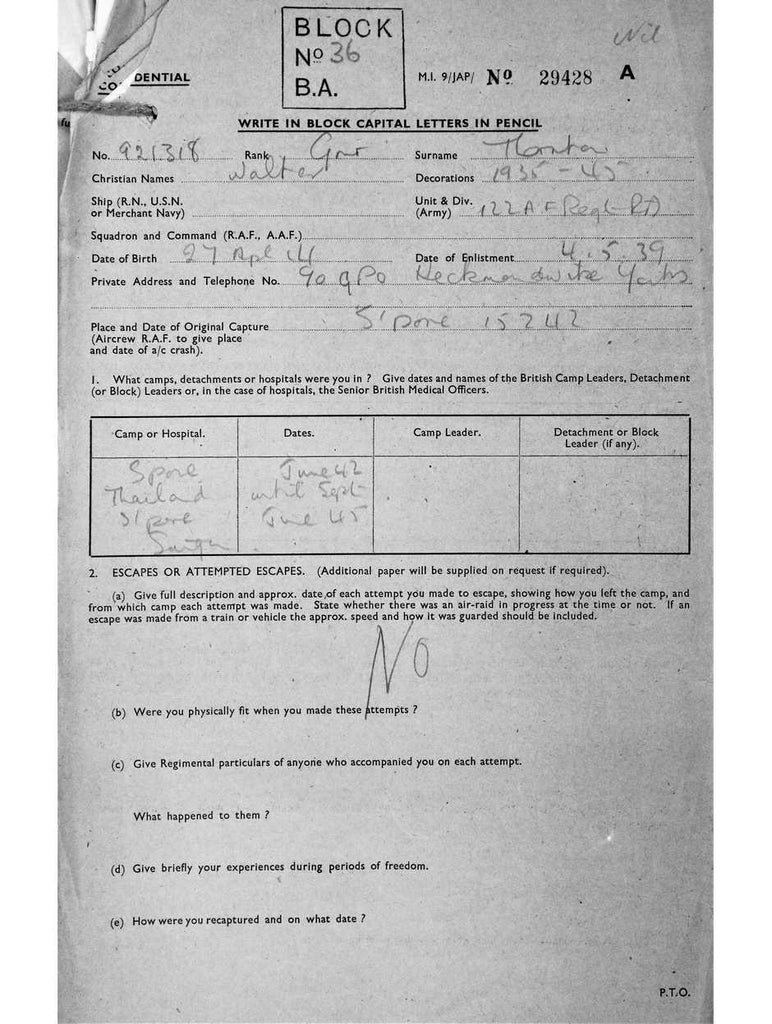 BLOCK
Nº 36
B.A.
Nil
DENTIAL
M.I. 9/JAP/ Nº 29428 A
WRITE IN BLOCK CAPITAL LETTERS IN PENCIL
No. 921318 Rank Gnr Surname Thornton
Christian Names Walter Decorations 1935-45
Ship (R.N., U.S.N. or Merchant Navy)
Unit & Div. (Army) 122 A F Regt RA
Squadron and Command (R.A.F., A.A.F.)
Date of Birth 27 Apl 14 Date of Enlistment 4.5.39
Private Address and Telephone No. 90 GPO Heckmondwike Yorks
Place and Date of Original Capture S'pore 15 2 42
(Aircrew R.A.F. to give place
and date of a/c crash).
1. What camps, detachments or hospitals were you in ? Give dates and names of the British Camp Leaders, Detachment
(or Block) Leaders or, in the case of hospitals, the Senior British Medical Officers.
Camp or Hospital. Dates. Camp Leader. Detachment or Block Leader (if any).
Spore June 42
Thailand until Sept
S'pore June 45
2. ESCAPES OR ATTEMPTED ESCAPES. (Additional paper will be supplied on request if required).
(a) Give full description and approx. date of each attempt you made to escape, showing how you left the camp, and
from which camp each attempt was made. State whether there was an air-raid in progress at the time or not. If an
escape was made from a train or vehicle the approx. speed and how it was guarded should be included.
NO
(b) Were you physically fit when you made these attempts ?
(c) Give Regimental particulars of anyone who accompanied you on each attempt.
What happened to them ?
(d) Give briefly your experiences during periods of freedom.
(e) How were you recaptured and on what date ?
P.T.O.